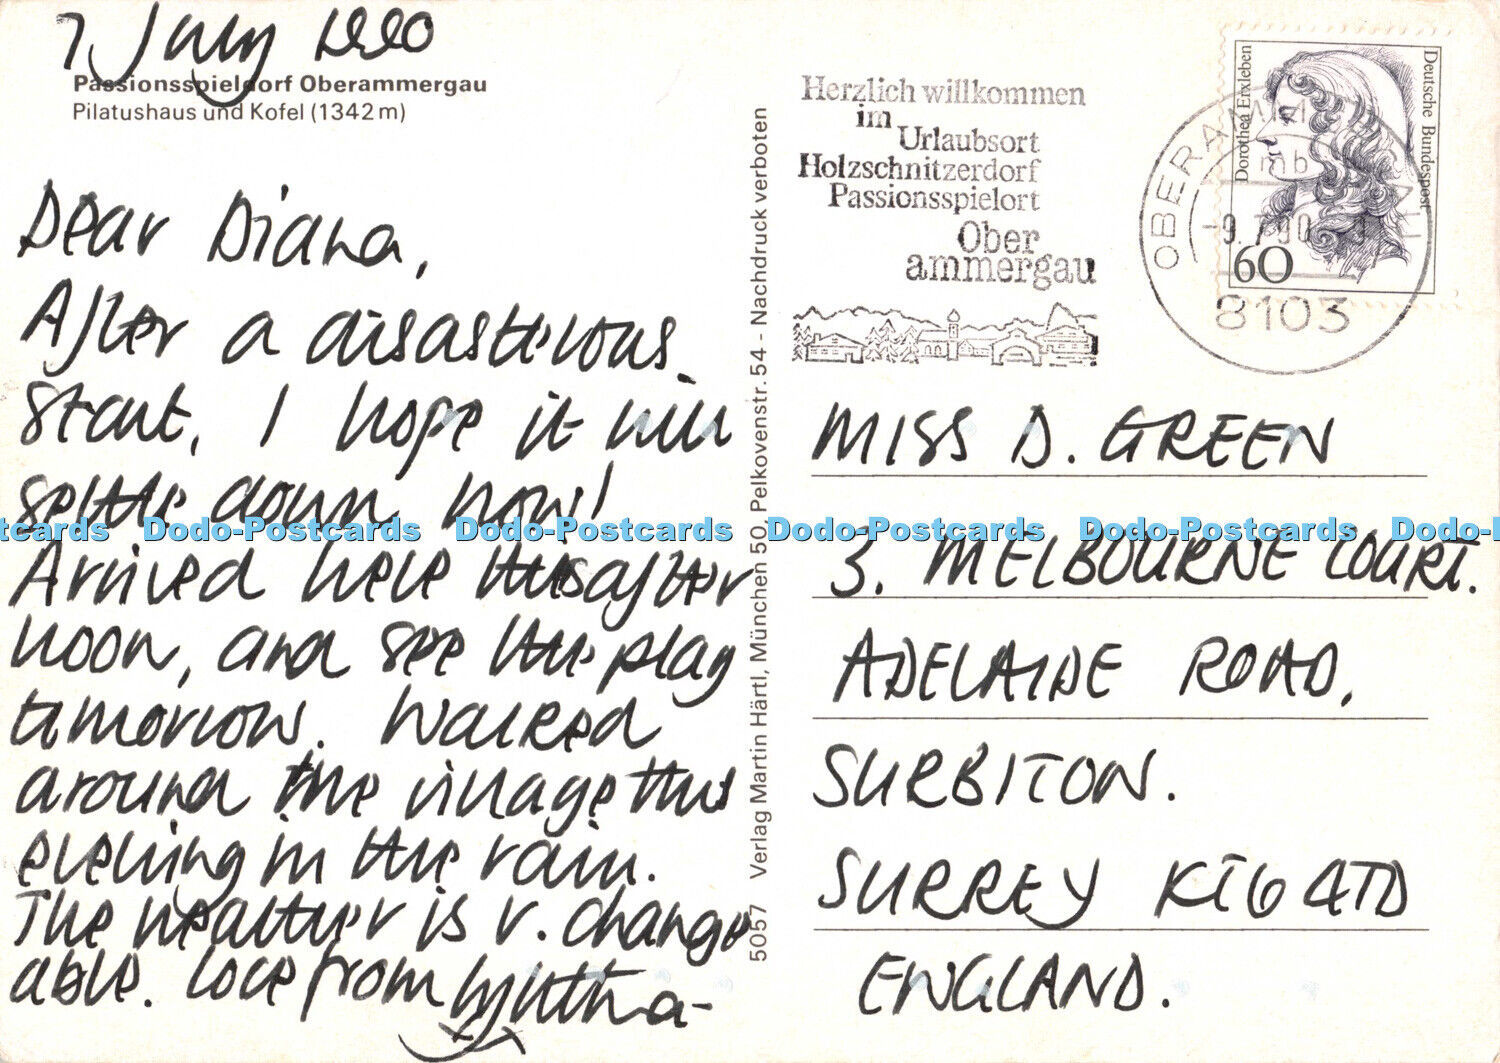 7 July 1990
Passionsspieldorf Oberammergau
Pilatushaus und Kofel (1342 m)
Dear Diana,
After a disasterous
start, I hope it will
settle down now!
Arrived here this after
noon, and see the play
tomorrow. Walked
around the village this
evening in the rain.
The weather is v. change
able. Love from Cynthia
5057 Verlag Martin Härtl, München 50, Pelkovenstr. 54 - Nachdruck verboten
Herzlich willkommen
im
Urlaubsort
Holzschnitzerdorf
Passionsspielort
Ober
ammergau
OBERAMMERGAU
mb
-9.7.90
8103
Dorothea Erxleben
Deutsche Bundespost
60
MISS D. GREEN
3. MELBOURNE COURT.
ADELAIDE ROAD,
SURBITON.
SURREY KT6 4TD
ENGLAND.
Postcards Dodo-Postcards Dodo-Postcards Dodo-Postcards Dodo-Postcards Dodo-P